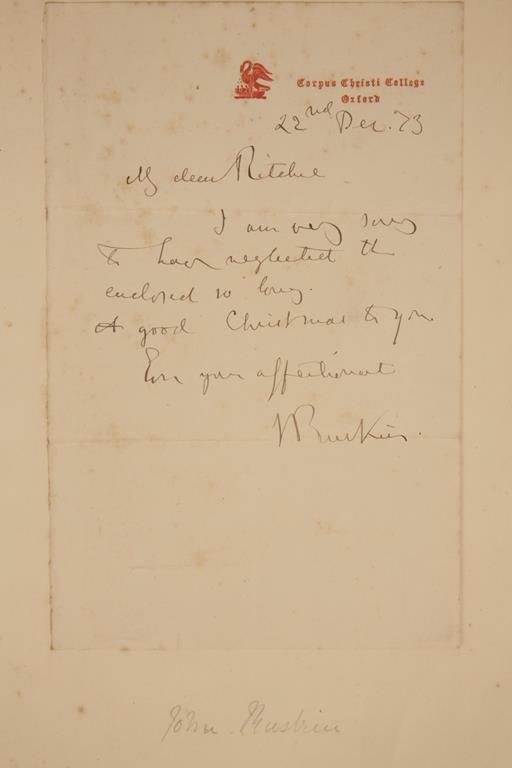 Corpus Christi College
Oxford
22nd Dec. 73
My dear Ritchie
I am very sorry
to have neglected the
enclosed so long.
A good Christmas to you.
Ever your affectionate
JRuskin.
John Ruskin